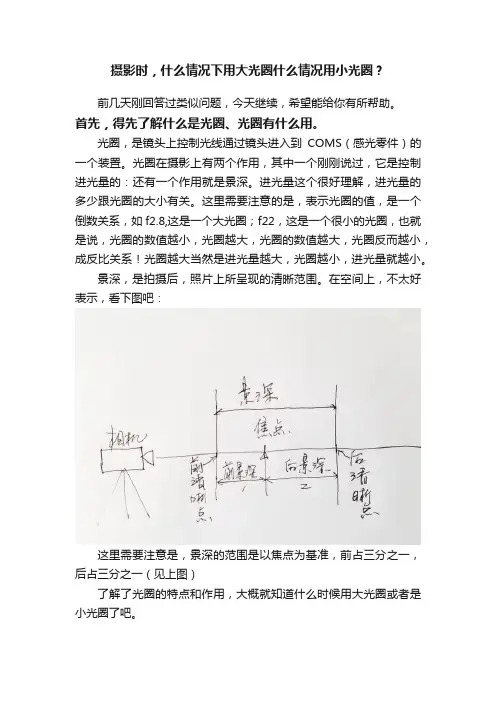 摄影时，什么情况下用大光圈什么情况用小光圈？
前几天刚回答过类似问题，今天继续，希望能给你有所帮助。
首先，得先了解什么是光圈、光圈有什么用。
光圈，是镜头上控制光线通过镜头进入到 COMS（感光零件）的
一个装置。光圈在摄影上有两个作用，其中一个刚刚说过，它是控制
进光量的：还有一个作用就是景深。进光量这个很好理解，进光量的
多少跟光圈的大小有关。这里需要注意的是，表示光圈的值，是一个
倒数关系，如 f2.8,这是一个大光圈；f22，这是一个很小的光圈，也就
是说，光圈的数值越小，光圈越大，光圈的数值越大，光圈反而越小，
成反比关系！光圈越大当然是进光量越大，光圈越小，进光量就越小。
景深，是拍摄后，照片上所呈现的清晰范围。在空间上，不太好
表示，看下图吧：
景深
焦点
相机
前清晰点
前景深
1
后景深
2
后清晰点
这里需要注意是，景深的范围是以焦点为基准，前占三分之一，
后占三分之一（见上图）
了解了光圈的特点和作用，大概就知道什么时候用大光圈或者是
小光圈了吧。